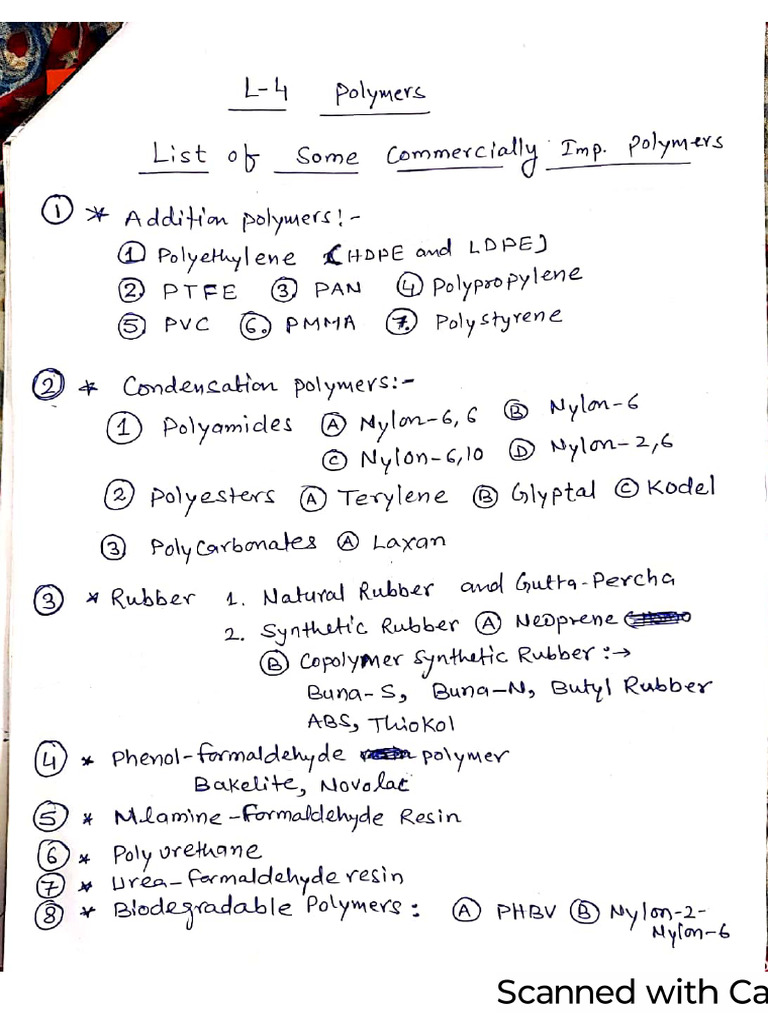 L-4 Polymers
List of Some Commercially Imp. Polymers
① * Addition polymers:-
① Polyethylene (HDPE and LDPE)
② PTFE ③ PAN ④ Polypropylene
⑤ PVC ⑥ PMMA ⑦ Polystyrene
② * Condensation polymers:-
① Polyamides Ⓐ Nylon-6,6 Ⓑ Nylon-6
Ⓒ Nylon-6,10 Ⓓ Nylon-2,6
② Polyesters Ⓐ Terylene Ⓑ Glyptal Ⓒ Kodel
③ Polycarbonates Ⓐ Laxan
③ * Rubber 1. Natural Rubber and Gutta-Percha
2. Synthetic Rubber Ⓐ Neoprene
Ⓑ Copolymer Synthetic Rubber :→
Buna-S, Buna-N, Butyl Rubber
ABS, Thiokol
④ * Phenol-formaldehyde polymer
Bakelite, Novolac
⑤ * Mlamine-formaldehyde Resin
⑥ * Polyurethane
⑦ * Urea-formaldehyde resin
⑧ * Biodegradable Polymers: Ⓐ PHBV Ⓑ Nylon-2-
Nylon-6
Scanned with Ca